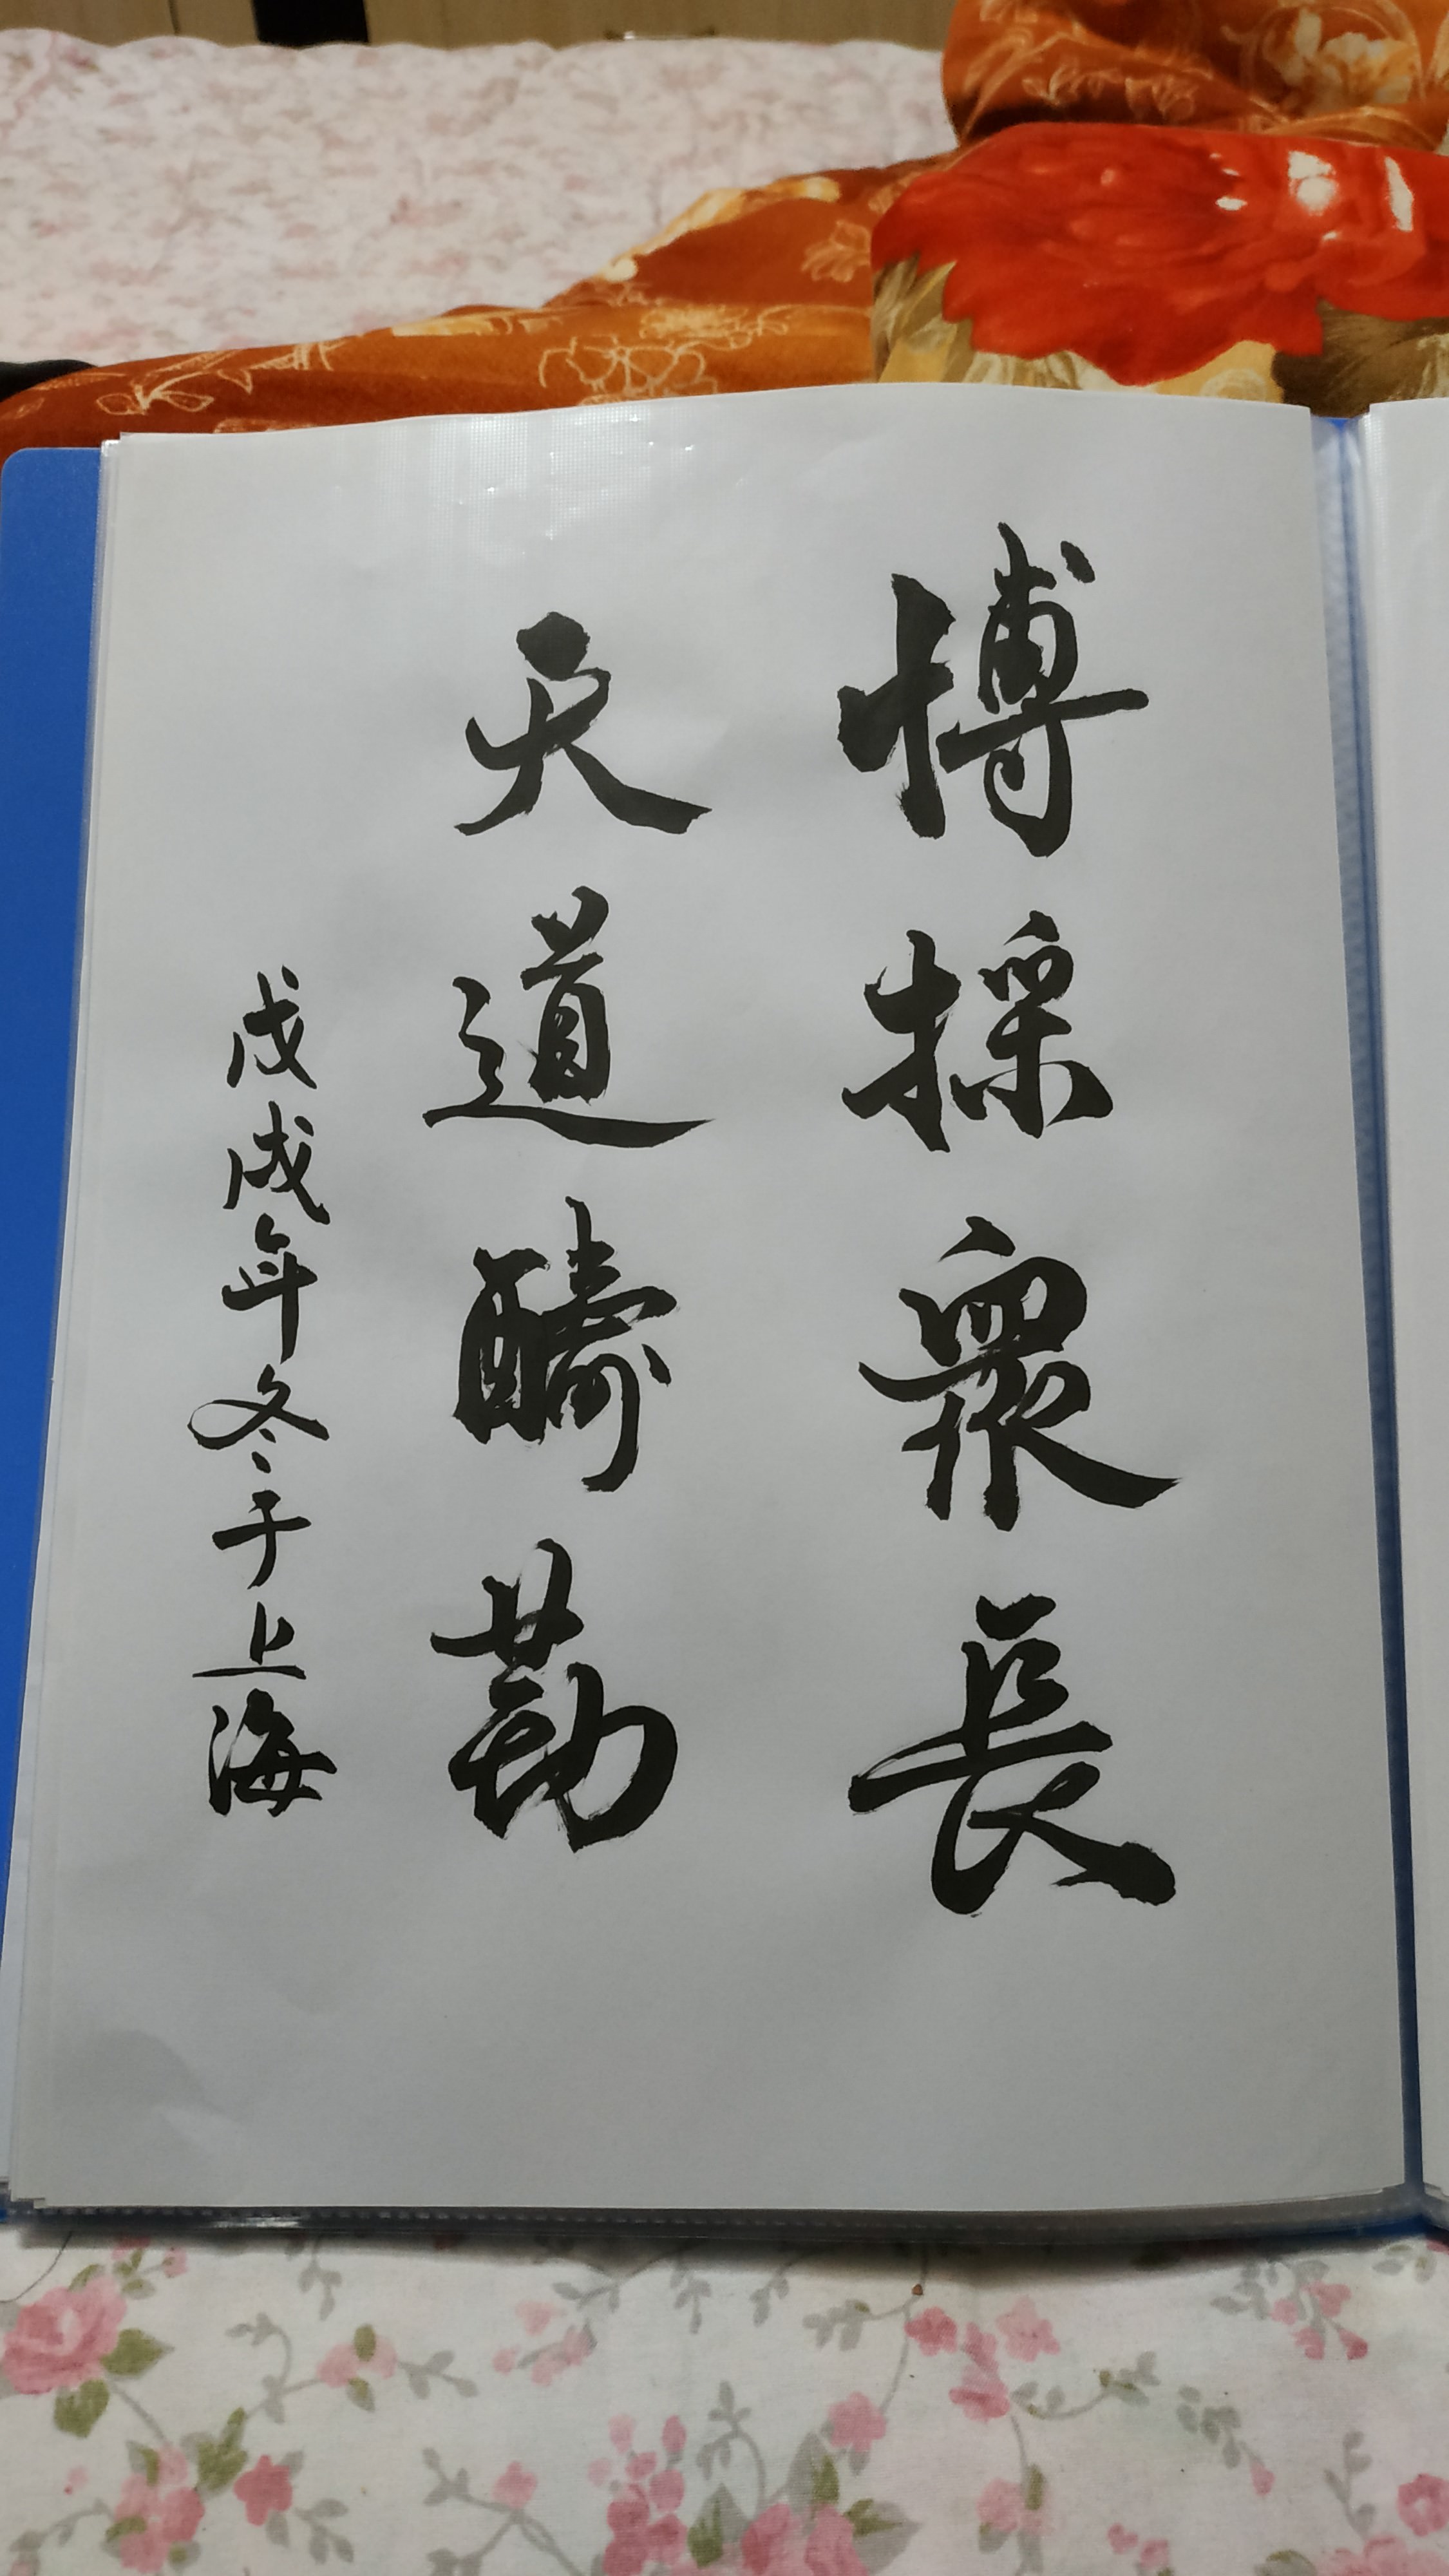 博採衆長
天道酬勤
戊戌年冬于上海